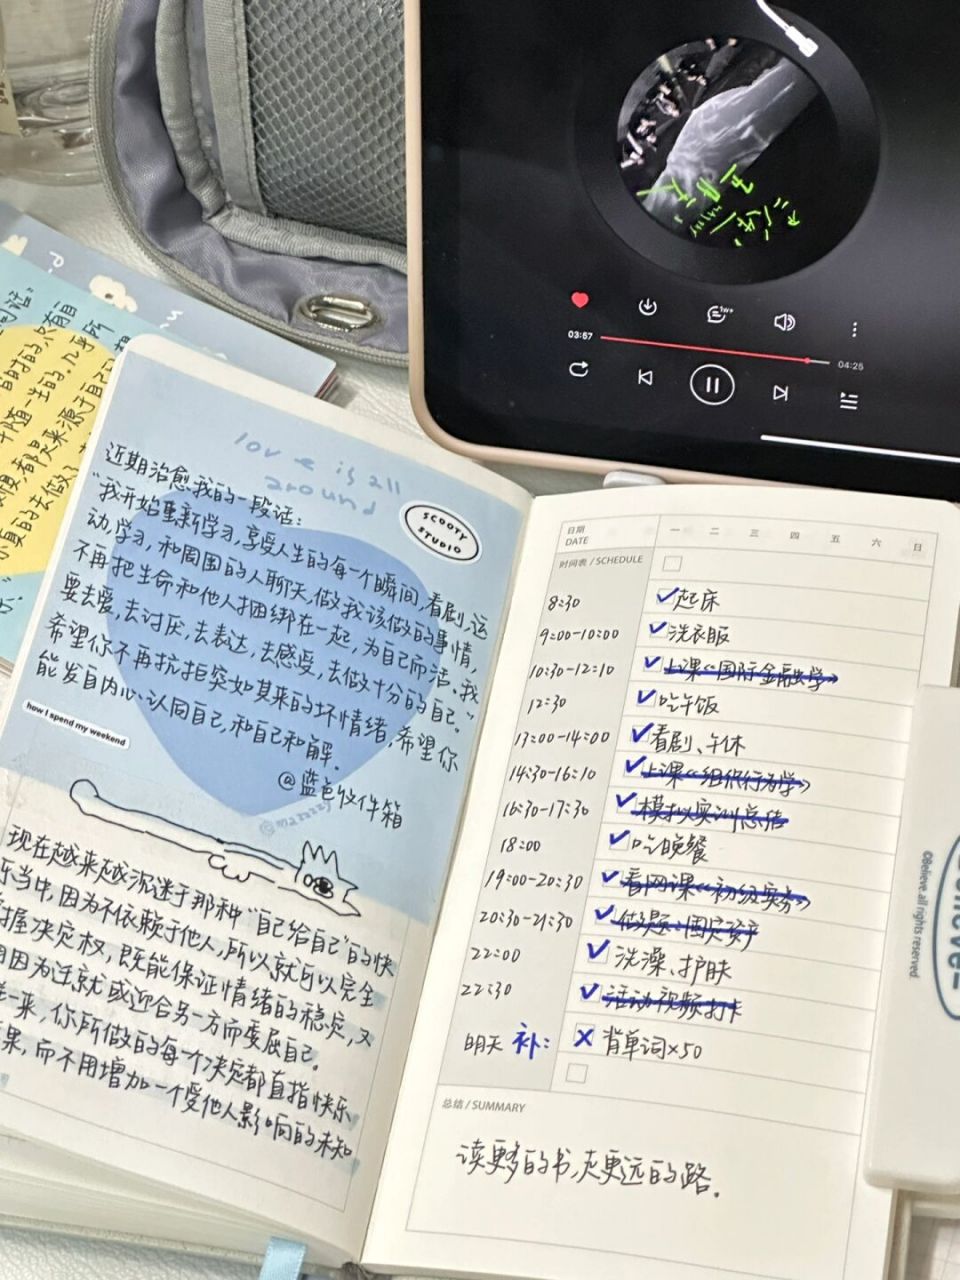 1w+
03:57
04:25
love is all
around
SCOOTY
STUDIO
近期治愈我的一段话：
“我开始重新学习,享受人生的每一个瞬间,看剧,运
动,学习,和周围的人聊天,做我该做的事情,
不再把生命和他人捆绑在一起,为自己而活。我
要去爱,去讨厌,去表达,去感受,去做十分的自己。”
希望你不再抗拒突如其来的坏情绪,希望你
能发自内心认同自己,和自己和解.
@蓝色收件箱
how I spend my weekend
@mazzzzy
现在越来越沉迷于那种“自己给自己”的快
乐当中,因为不依赖于他人,所以就可以完全
掌握决定权,既能保证情绪的稳定,又
因为迁就或迎合另一方而委屈自己.
一来,你所做的每一个决定都直指快乐
果,而不用增加一个受他人影响的未知
日期
DATE
一 二 三 四 五 六 日
时间表 / SCHEDULE
8:30 起床
9:00-10:00 洗衣服
10:30-12:10 上课《国际金融学》
12:30 吃午饭
13:00-14:00 看剧、午休
14:30-16:10 上课《组织行为学》
16:30-17:30 模拟实训总结
18:00 吃晚餐
19:00-20:30 看网课《初级实务》
20:30-21:30 做题:固定资产
22:00 洗澡、护肤
22:30 活动视频打卡
明天 补: 背单词×50
总结 / SUMMARY
读更多的书,走更远的路.
©Believe all rights reserved.